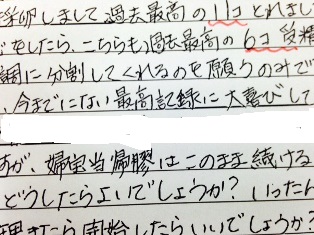 採卵しまして過去最高の11コとれまし
をしたら、こちらも過去最高の6コ受精
調に分割してくれるのを願うのみで
、今までにない最高記録に大喜びして
が、婦宝当帰膠はこのまま続ける
どうしたらよいでしょうか？いったん
理きたら開始したらいいでしょうか？